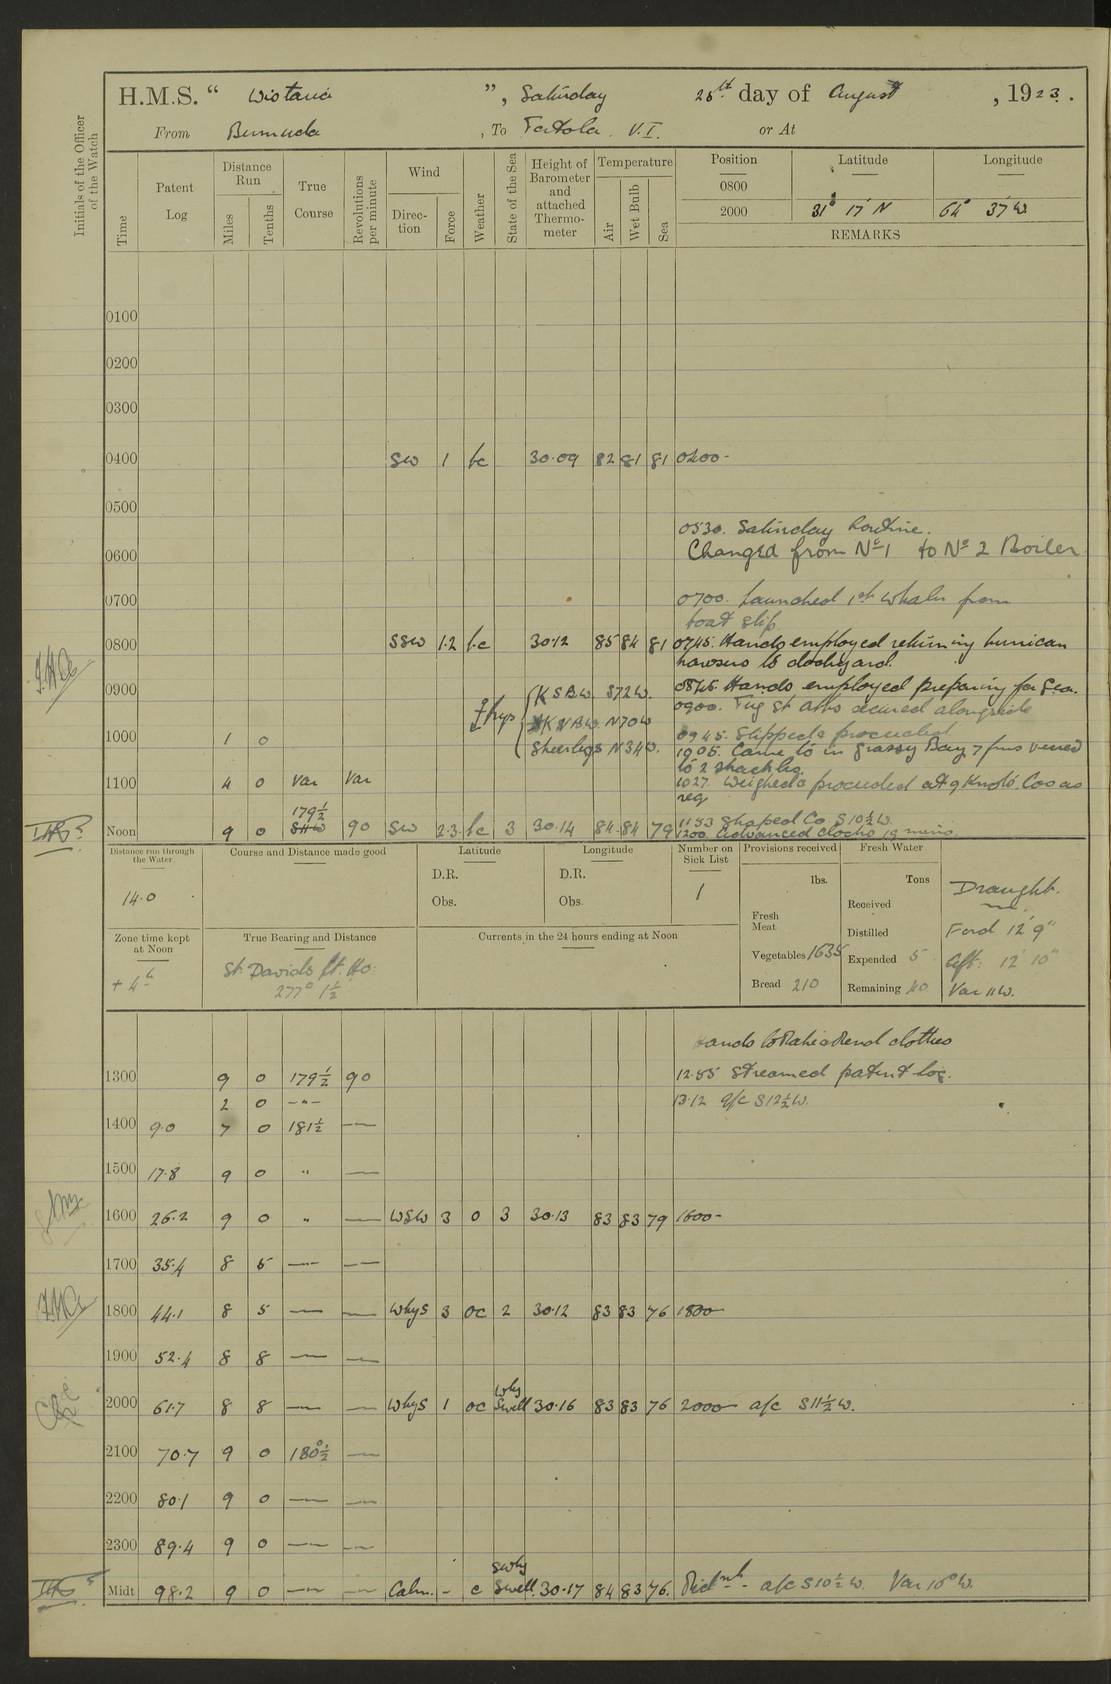 H.M.S. “ Wistaria ”, Saturday 25th day of August, 1923.
From Bermuda, To Tortola. V.I. or At
Initials of the Officer of the Watch
Time
Patent Log
Distance Run
Miles
Tenths
True Course
Revolutions per minute
Wind
Direction
Force
Weather
State of the Sea
Height of Barometer and attached Thermometer
Temperature
Air
Wet Bulb
Sea
Position Latitude Longitude
0800
2000 31° 17' N 64° 37' W
REMARKS
0100
0200
0300
0400 SW 1 bc 30.09 82 81 81 0400-
0500
0530. Saturday Routine.
0600 Changed from No 1 to No 2 Boiler
0700 0700. Launched 1st whaler from
boat slip
0800 SSW 1.2 b.c 30.12 85 84 81 0745. Hands employed returning hurrican
hawsers to dockyard.
0900 K S B.W. S72W. 0845. Hands employed preparing for Sea.
N70W 0900. Tug St secured alongside
1000 1 0 Sheerlegs N34W. 0945. Slipped & proceeded
1005. Came to in Grassy Bay 7 fms veered
to 2 shackles
1100 4 0 Var Var 1027 Weighed & proceeded at 9 Knots. Co as
req
179½
Noon 9 0 90 SW 2.3 bc 3 30.14 84 84 79 1153 Shaped Co. S10½W.
1200. Advanced clocks 19 mins.
Distance run through the Water
14.0
Course and Distance made good
Latitude
D.R.
Obs.
Longitude
D.R.
Obs.
Number on Sick List
1
Provisions received
lbs.
Fresh Meat
Vegetables 1635
Bread 210
Fresh Water
Tons
Received
Distilled
Expended 5
Remaining 40
Draught.
Ford 12' 9"
Aft: 12' 10"
Var 11W.
Zone time kept at Noon
+4h
True Bearing and Distance
St. Davids Lt. Ho:
277° 1½
Currents in the 24 hours ending at Noon
Hands to Make & Mend clothes
1300 9 0 179½ 90 12.55 Streamed patent log.
2 0 -"- 13.12 a/c S12½W.
1400 9.0 7 0 181½ —
1500 17.8 9 0 " —
1600 26.2 9 0 " — WSW 3 0 3 30.13 83 83 79 1600-
1700 35.4 8 5 — —
1800 44.1 8 5 — — WbyS 3 oc 2 30.12 83 83 76 1800
1900 52.4 8 8 — —
2000 61.7 8 8 — — WbyS 1 oc Wly Swell 30.16 83 83 76 2000 a/c S11½W.
2100 70.7 9 0 180°½ —
2200 80.1 9 0 — —
2300 89.4 9 0 — —
Midt 98.2 9 0 — — Calm. - c Swly Swell. 30.17 84 83 76. Midnt - a/c S10½W. Var 10°W.